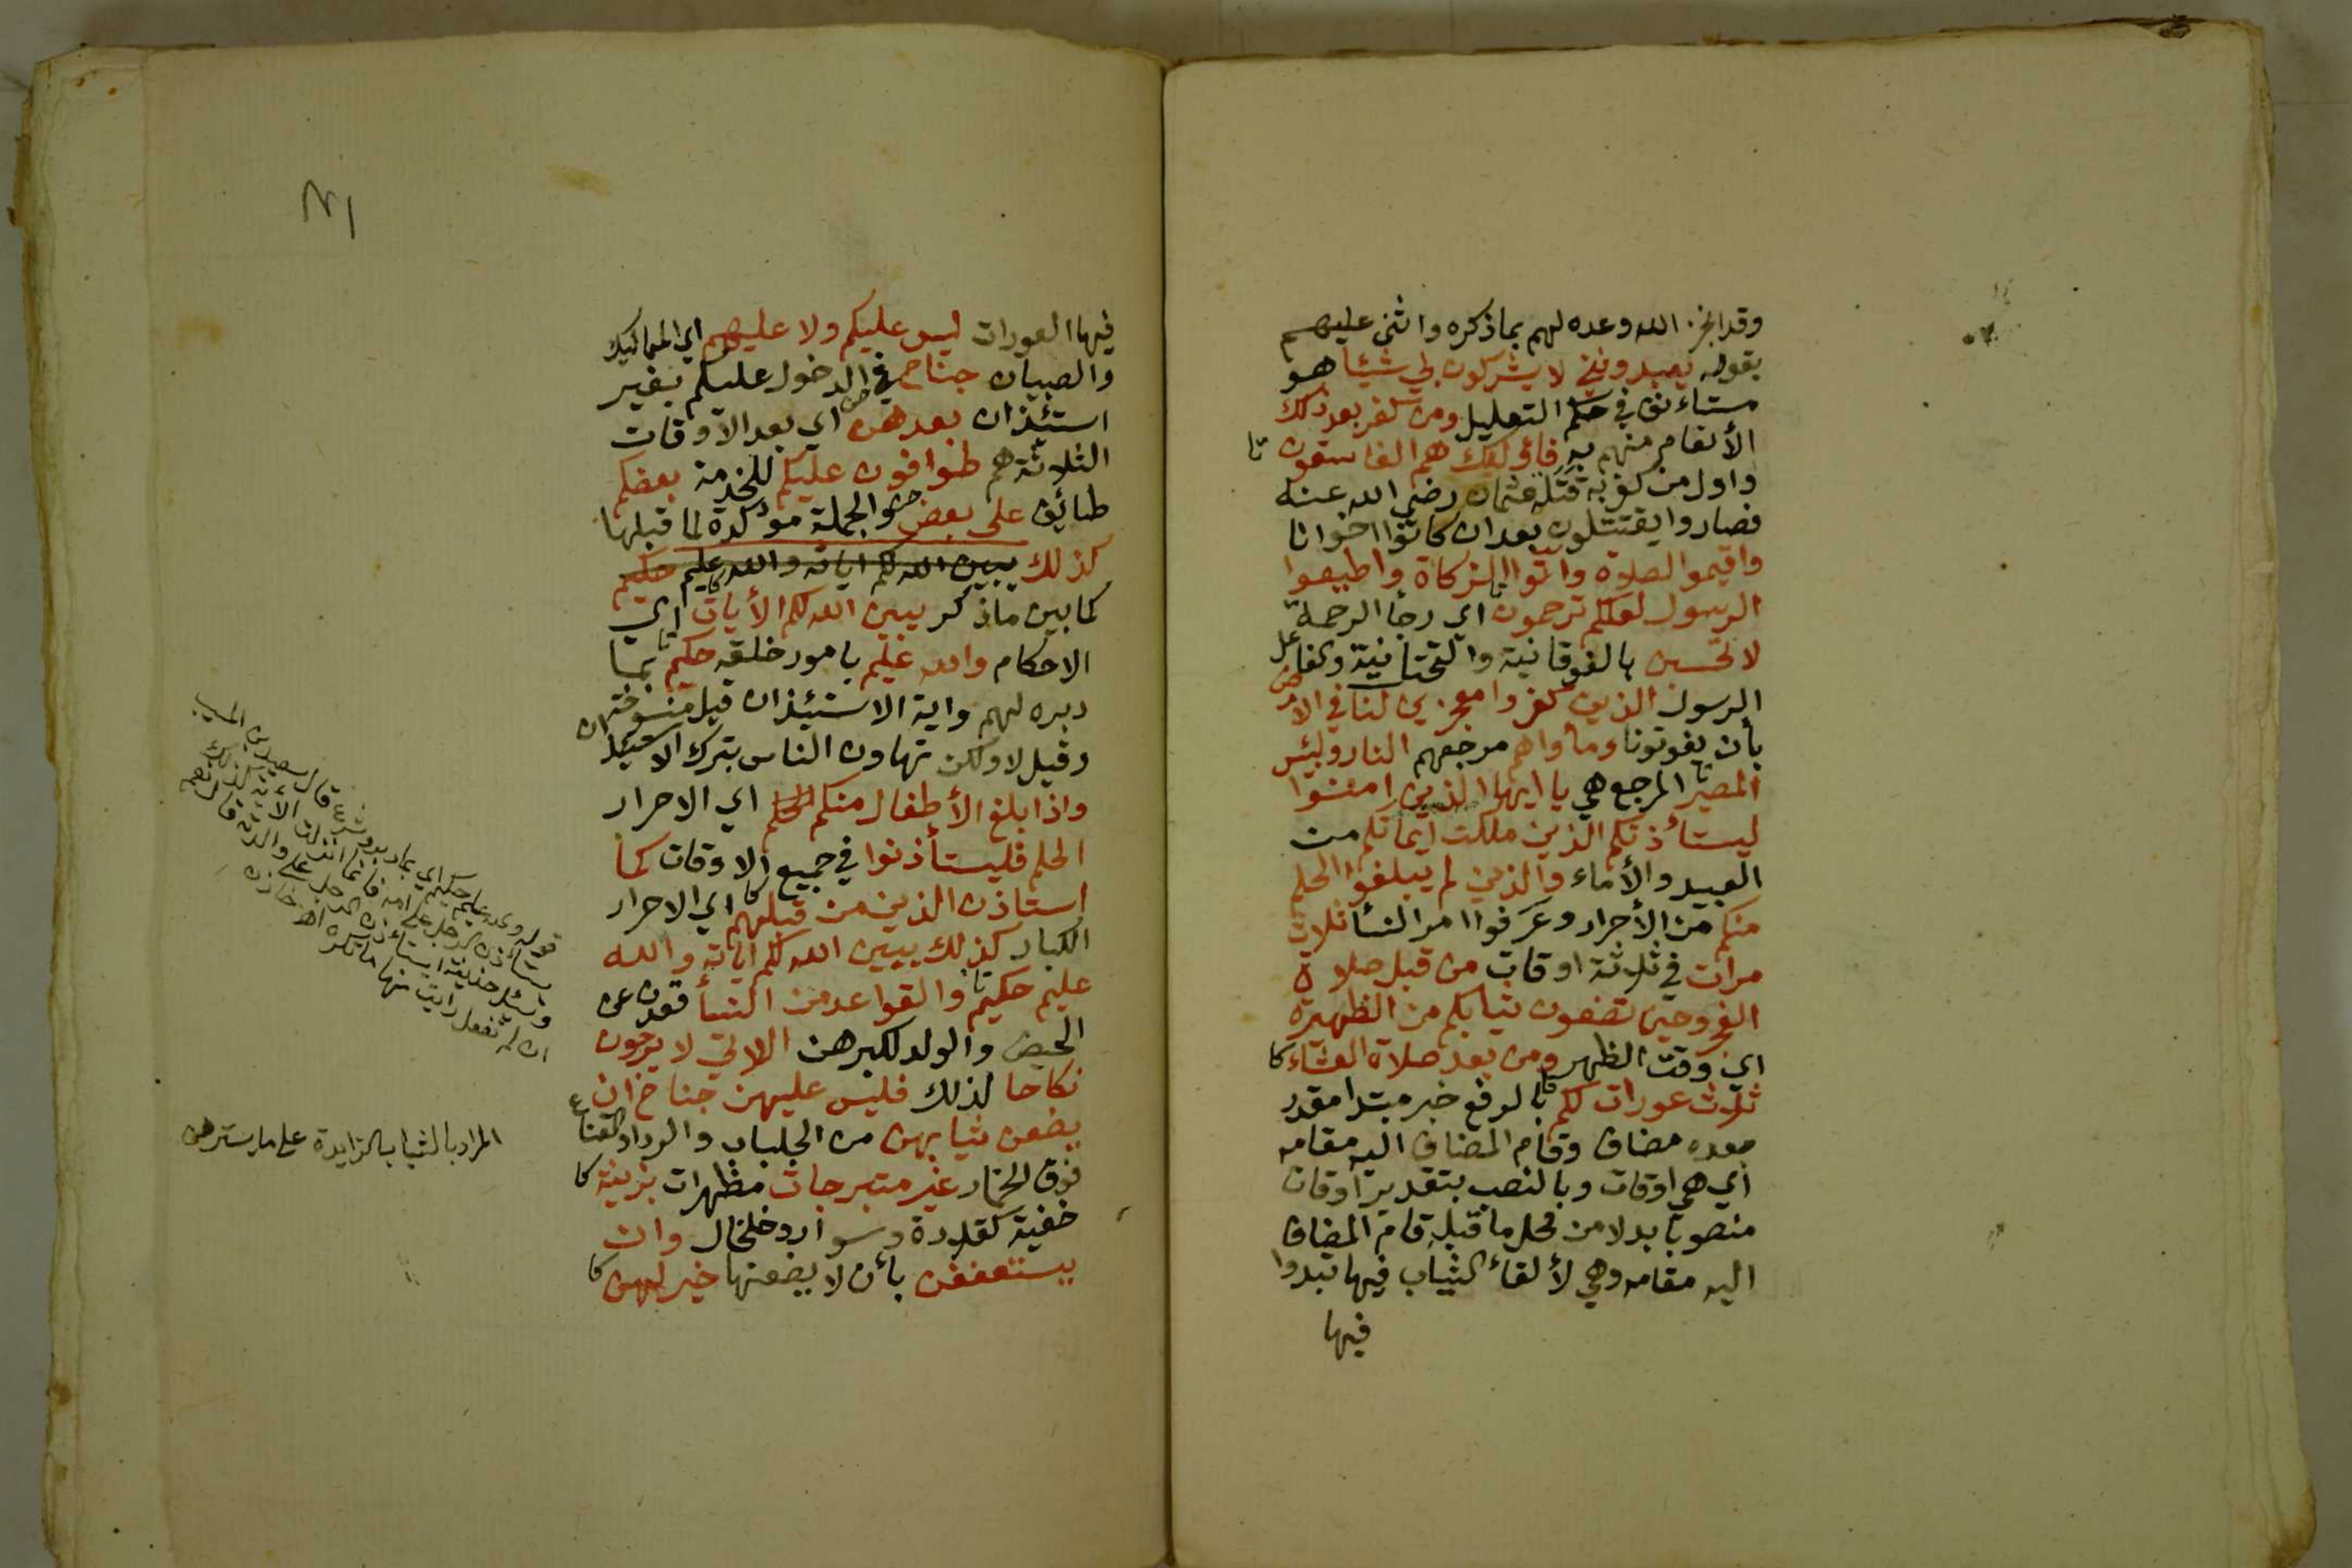 وقد انجز الله وعده لهم بما ذكره واثنى عليهم
بقوله يعبدونني لا يشركون بي شيئا هو
مستاءنف في حكم التعليل ومن كفر بعد ذلك
الأنعام منهم به فاؤلئك هم الفاسقون تا
واول من كفر به قتلة عثمان رضي الله عنه
فصاروا يقتتلون بعد ان كانوا اخوانا
واقيموا الصلاة واتوا الزكاة واطيعوا
الرسول لعلكم ترحمون تا اي رجأ الرحمة
لا تحسبن بالفوقانية والتحتانية والفاعل
الرسول الذين كفروا معجزين لنا في الارض
بأن يفوتونا ومأواهم مرجعهم النار ولبئس
المصير تا المرجع هي يا ايها الذين امنوا
ليستأذنكم الذين ملكت ايمانكم من
العبيد والأماء والذين لم يبلغوا الحلم
منكم من الأحرار وعرفوا امر النسأ ثلاث
مرات في ثلاثة اوقات من قبل صلاة
الفجر وحين تضعون ثيابكم من الظهيرة
اي وقت الظهر ومن بعد صلاة العشاء كا
ثلاث عورات لكم بالرفع خبر مبتدا مقدر
بعده مضاف وقام المضاف اليه مقامه
اي هي اوقات وبالنصب بتقدير اوقات
منصوبا بدلا من محل ما قبله قام المضاف
اليه مقامه وهي لألقاء الثياب فيها تبدوا
فيها
٤١
فيها العورات ليس عليكم ولا عليهم اي المماليك
والصبيان جناح في الدخول عليكم بغير
استئذان بعدهن اي بعد الأوقات
الثلاثة هم طوافون عليكم للخدمة بعضكم
طائف على بعض والجملة مؤكدة لما قبلها
كذلك يبين الله لكم اياته والله عليم حكيم
كما بين ما ذكر يبين الله لكم الأيات كا اي
الاحكام والله عليم بامور خلقه حكيم تا بما
دبره لهم واية الاستيئذان قيل منسوخة
وقيل لا ولكن تهاون الناس بترك الاستيئذان
واذا بلغ الأطفال منكم الحلم اي الاحرار
الحلم فليستأذنوا في جميع الاوقات كما
استاذن الذين من قبلهم كا اي الاحرار
الكبار كذلك يبين الله لكم اياته والله
عليم حكيم تا والقواعد من النسأ قعدن عن
الحيض والولد لكبرهن اللاتي لا يرجون
نكاحا لذلك فليس عليهن جناح ان
يضعن ثيابهن من الجلباب والرداء والقناع
فوق الخمار غير متبرجات مظهرات بزينة كا
خفية كقلادة وسوار وخلخال وان
يستعففن بأن لا يضعنها خير لهن كا
قوله والله عليم حكيم اي بما دبر وشرع قال سعيد بن المسيب
يستأذن الرجل على امه فانما انزلت الآية لذلك
وسئل حذيفة ايستأذن الرجل على والدته قال نعم
ان لم تفعل رايت منها ما تكره
المراد بالثياب الزايدة على ما يسترهن